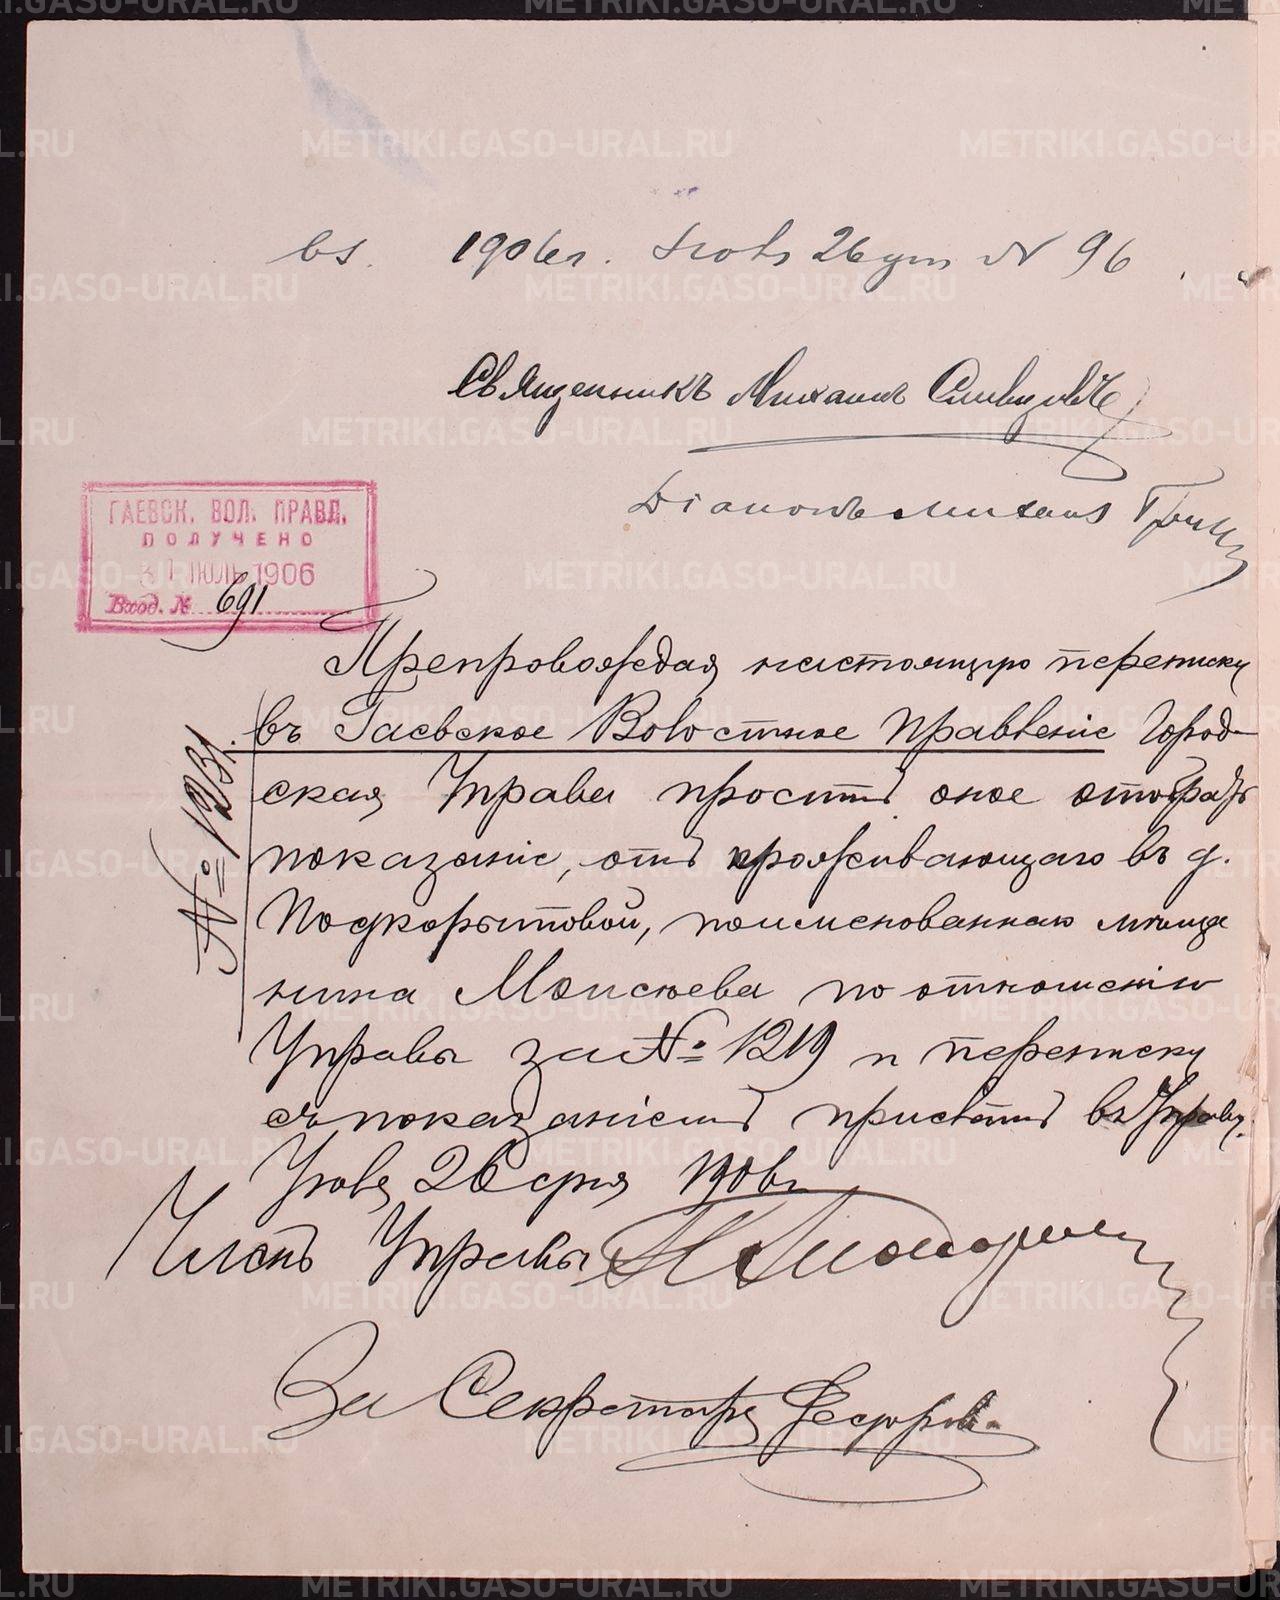 въ. 1906 г. Іюль 26 дня № 96
Священникъ Михаилъ Слѣпцовъ
Діаконъ Михаилъ
ГАЕВСК. ВОЛ. ПРАВЛ.
ПОЛУЧЕНО
31 ІЮЛЬ 1906
Вход. № 691
Препровождая настоящую переписку
въ Гаевское Волостное Правленіе Город-
ская Управа проситъ оное отобрать
показаніе, отъ проживающаго въ д.
Подкорытовой, поименованнаго мѣща
нина Моисѣева по отношенію
Управы за № 1219 и переписку
съ показаніемъ прислать въ Управу.
Іюля 26 дня 1906 г.
Членъ Управы
За Секретаря Федоровъ
№ 1231.
METRIKI.GASO-URAL.RU